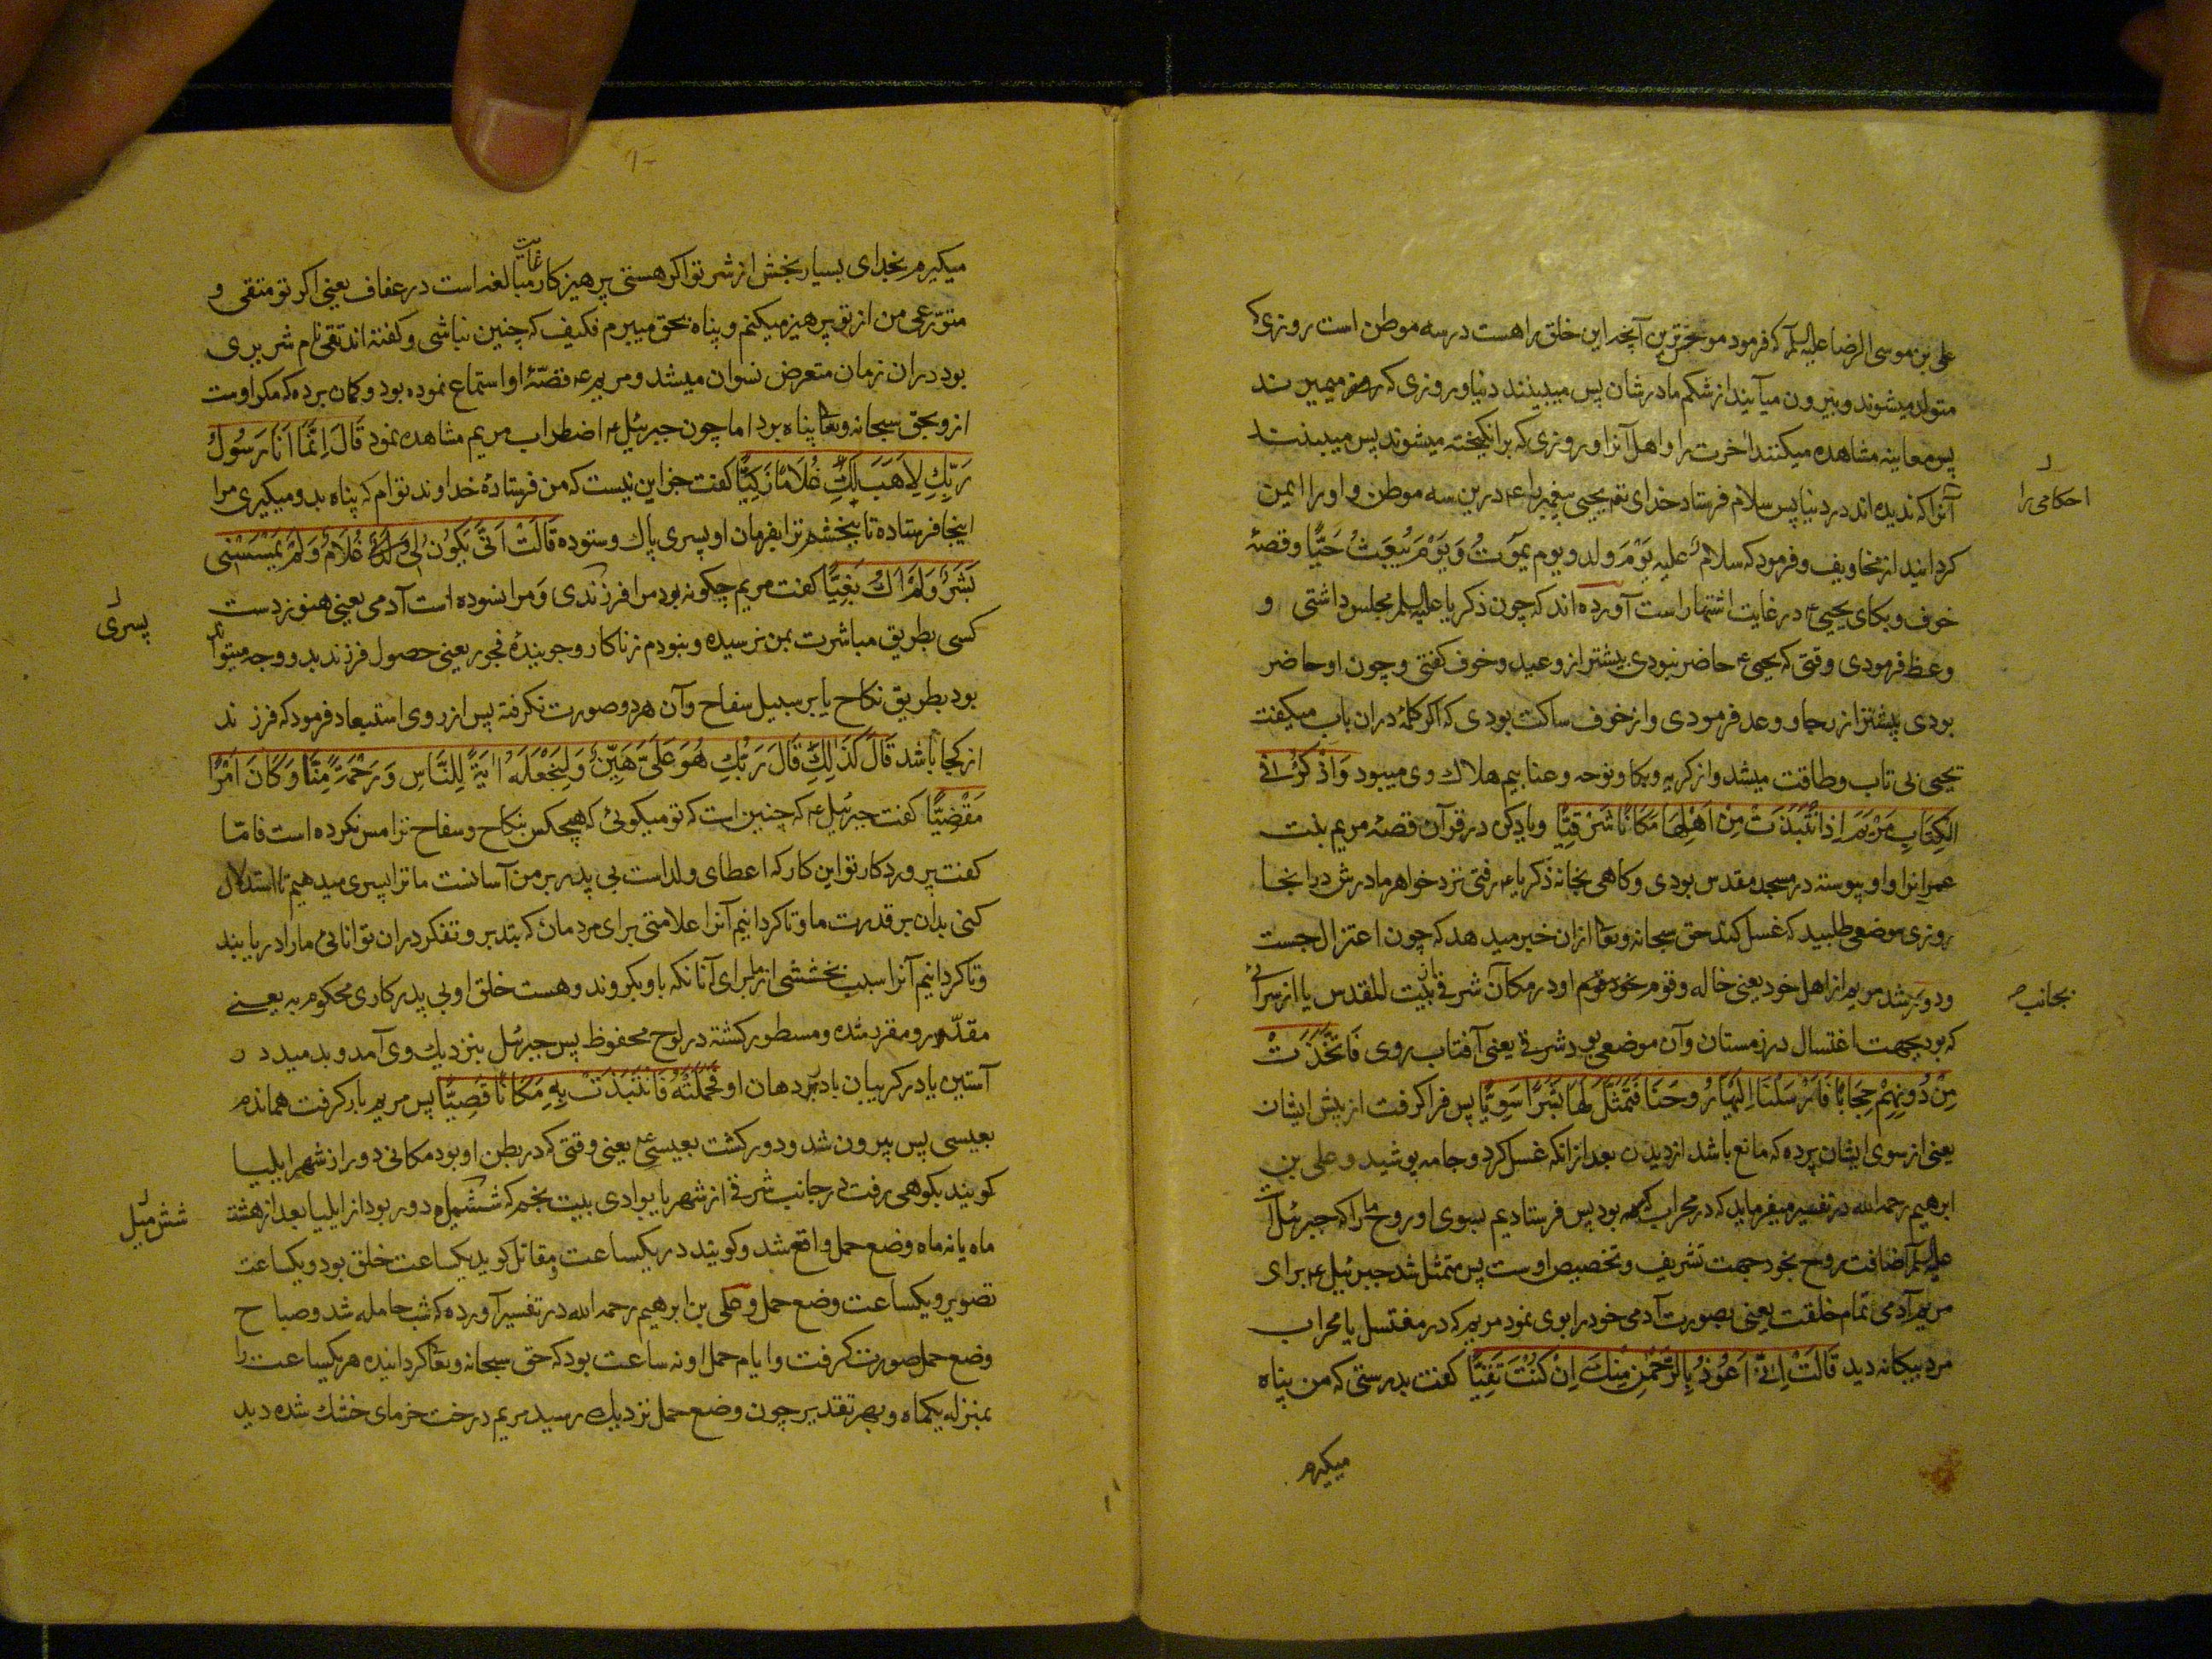 علی بن موسی الرضا علیه السلام که فرمود موحش‌ترین آنچه این خلق را هست در سه موطن است روزی که
متولد میشوند و بیرون میآیند از شکم مادرشان پس میبینند دنیا و روزی که میمیرند
پس معاینه مشاهده میکنند آخرت را و اهل آنرا و روزی که برانگیخته میشوند پس میبینند
احکامی را
آنرا که ندیده‌اند در دنیا پس سلام فرستاد خدای تع یحیی پیغمبر را ع درین سه موطن و او را ایمن
کردانید از مخاویف و فرمود که سلام علیه یوم ولد و یوم یموت و یوم یبعث حیّا و قصهٔ
خوف و بکای یحیی ع در غایت اشتهار است آورده‌اند که چون ذکریا علیه السلم مجلس داشتی و
وعظ فرمودی وقتی که یحیی ع حاضر نبودی بیشتر از وعید و خوف کفتی و چون او حاضر
بودی بیشتر از رجا و وعد فرمودی و از خوف ساکت بودی که اکر کلمهٔ دران باب میکفت
یحیی بی تاب و طاقت میشد و از کریه و بکا و نوحه و عنا بیم هلاک وی میبود وَاذْكُرْ فِی
الْكِتَابِ مَرْیَمَ اِذِ انْتَبَذَتْ مِنْ اَهْلِهَا مَكَانًا شَرْقِیًّا و یاد کن در قرآن قصهٔ مریم بنت
عمرانرا و او پیوسته در مسجد مقدس بودی و کاهی بخانه ذکریا ع رفتی نزد خواهر مادرش در انجا
روزی موضعی طلبید که غسل کند حق سبحانه و تعا ازان خبر میدهد که چون اعتزال جست
و دور شد مریم از اهل خود یعنی خاله و قوم او در مکان شرقی از بیت المقدس یا از سرائی
بجانب
که بود بجهت اغتسال در زمستان و آن موضعی بود شرقی یعنی آفتاب روی فَاتَّخَذَتْ
مِنْ دُونِهِمْ حِجَابًا فَاَرْسَلْنَا اِلَیْهَا رُوحَنَا فَتَمَثَّلَ لَهَا بَشَرًا سَوِیًّا پس فرا کرفت از پیش ایشان
یعنی از سوی ایشان پرده که مانع باشد از دیدن بعد از انکه غسل کرد و جامه پوشید و علی بن
ابرهیم رحمه الله در تفسیر میفرماید که در محراب بود پس فرستادیم بسوی او روح ما را که جبرئیل است
علیه السلم اضافت روح بخود جهت تشریف و تخصیص اوست پس متمثل شد جبرئیل ع برای
مریم آدمی تمام خلقت یعنی بصورت آدمی خود را بوی نمود مریم که در مغتسل یا محراب
مرد بیکانه دید قَالَتْ اِنِّی اَعُوذُ بِالرَّحْمٰنِ مِنْكَ اِنْ كُنْتَ تَقِیًّا کفت بدرستی که من پناه
میکیرم
میکیرم بخدای بسیار بخش از شر تو اکر هستی پرهیزکار غایت مبالغه است در عفاف یعنی اکر تو متقی و
متورعی من از تو پرهیز میکنم و پناه بحق میبرم فکیف که چنین نباشی و کفته‌اند تقی نام شریری
بود دران زمان متعرض نسوان میشد و مریم ع قصّهٔ او استماع نموده بود و کمان برده که مکر اوست
ازو بحق سبحانه و تعا پناه برد اما چون جبرئیل ع اضطراب مریم مشاهده نمود قَالَ اِنَّمَا اَنَا رَسُولُ
رَبِّكِ لِاَهَبَ لَكِ غُلَامًا زَكِیًّا کفت جز این نیست که من فرستادهٔ خداوند توام که پناه بدو میکیری مرا
اینجا فرستاده تا ببخشم ترا بفرمان او پسری پاک و ستوده قَالَتْ اَنّٰی یَكُونُ لِی غُلَامٌ وَلَمْ یَمْسَسْنِی
بَشَرٌ وَلَمْ اَكُ بَغِیًّا کفت مریم چکونه بود مرا فرزندی و مرا نسوده است آدمی یعنی هنوز دست
پسری
کسی بطریق مباشرت بمن نرسیده و نبودم زناکار و جویندهٔ فجور یعنی حصول فرزند بدو وجه میتواند
بود بطریق نکاح یا بر سبیل سفاح و آن هر دو صورت نکرفته پس از روی استبعاد فرمود که فرزند
از کجا باشد قَالَ كَذٰلِكِ قَالَ رَبُّكِ هُوَ عَلَیَّ هَیِّنٌ وَلِنَجْعَلَهُ اٰیَةً لِلنَّاسِ وَرَحْمَةً مِنَّا وَكَانَ اَمْرًا
مَقْضِیًّا کفت جبرئیل ع که چنین است که تو میکوئی که هیچکس بنکاح و سفاح ترا مس نکرده است فامّا
کفت پرورد کار تو این کار که اعطای ولد است بی پدر بر من آسانست ما ترا پسری میدهیم تا استدلال
کنی بدان بر قدرت ما و تا کردانیم آنرا علامتی برای مردمان که بتدبر و تفکر دران توانائی ما را دریابند
و تا کردانیم آنرا سبب بخششی از ما برای آنانکه باو بکروند و هست خلق او بی پدر کاری محکوم به یعنی
مقدّر و مقرر شده و مسطور کشته در لوح محفوظ پس جبرئیل بنزدیک وی آمد و بدمید در
آستین یا در کریبان یا در دهان او فَحَمَلَتْهُ فَانْتَبَذَتْ بِهِ مَكَانًا قَصِیًّا پس مریم بار کرفت هماندم
بعیسی پس بیرون شد و دور کشت بعیسی ع یعنی وقتی که در بطن او بود مکانی دور از شهر ایلیا
کویند بکوهی رفت در جانب شرقی از شهر یا بوادی بیت لحم که شش میل دور بود از ایلیا بعد از هشت
شش میل
ماه یا نه ماه وضع حمل واقع شد و کویند در یکساعت و مقاتل کوید یکساعت خلق بود و یکساعت
تصویر و یکساعت وضع حمل و علی بن ابرهیم رحمه الله در تفسیر آورده که شب حامله شد و صباح
وضع حمل صورت کرفت و ایام حمل او نه ساعت بود که حق سبحانه و تعا کردانیده هر یکساعت را
بمنزله یکماه و بهر تقدیر چون وضع حمل نزدیک رسید مریم درخت خرمای خشک شده دید